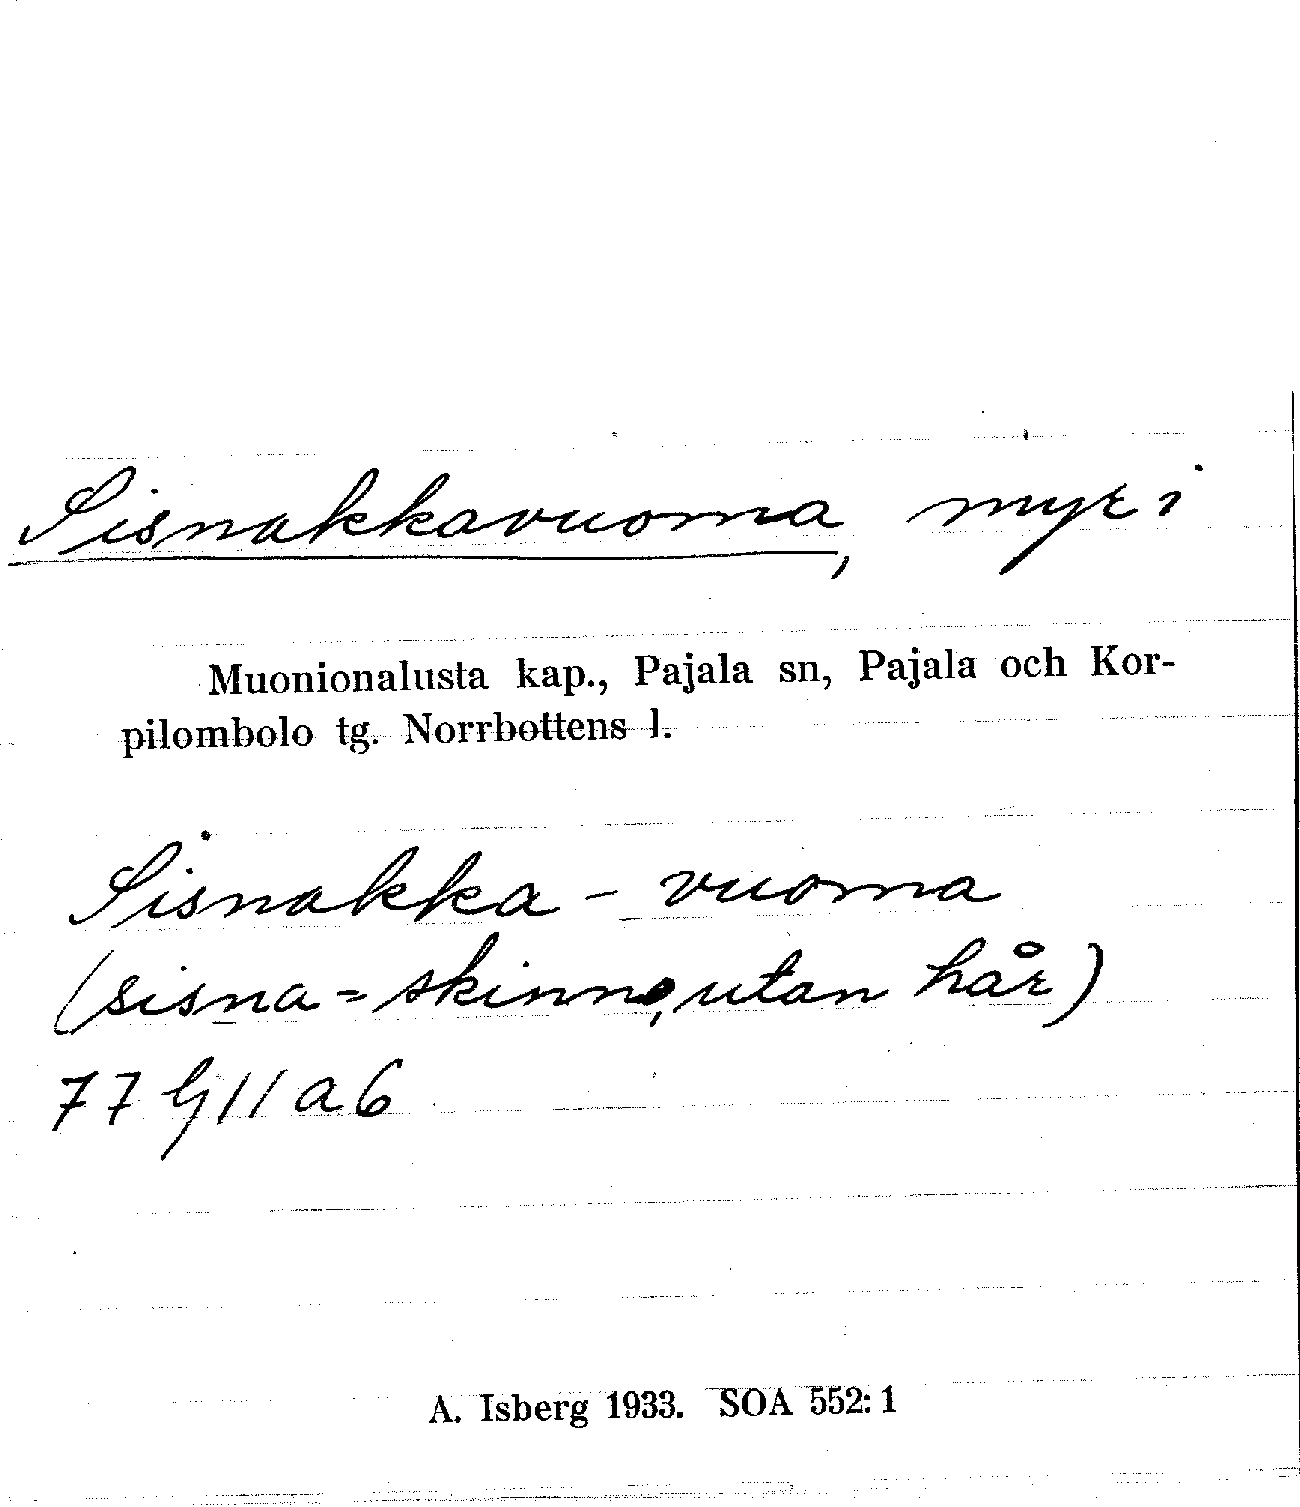 Sisnakkavuoma, myr i
Muonionalusta kap., Pajala sn, Pajala och Kor-
pilombolo tg. Norrbottens l.
Sisnakka - vuoma
(sisna = skinn, utan hår)
77 G 11 a 6
A. Isberg 1933. SOA 552: 1